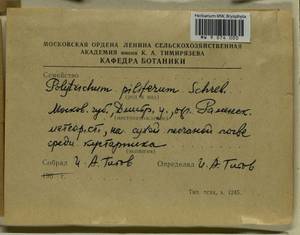 Herbarium MW, Bryophyta
MW 9 074 000
МОСКОВСКАЯ ОРДЕНА ЛЕНИНА СЕЛЬСКОХОЗЯЙСТВЕННАЯ
АКАДЕМИЯ имени К. А. ТИМИРЯЗЕВА
КАФЕДРА БОТАНИКИ
Семейство
Polytrichum piliferum Schreb.
(род и вид)
Моск. губ., Дмитр. у., окр. Раменск.
(местонахождение)
на сухой песчаной почве
среди кустарника
(экология)
Собрал И. А. Титов Определил И. А. Титов
Тип. тсха, з. 1245.